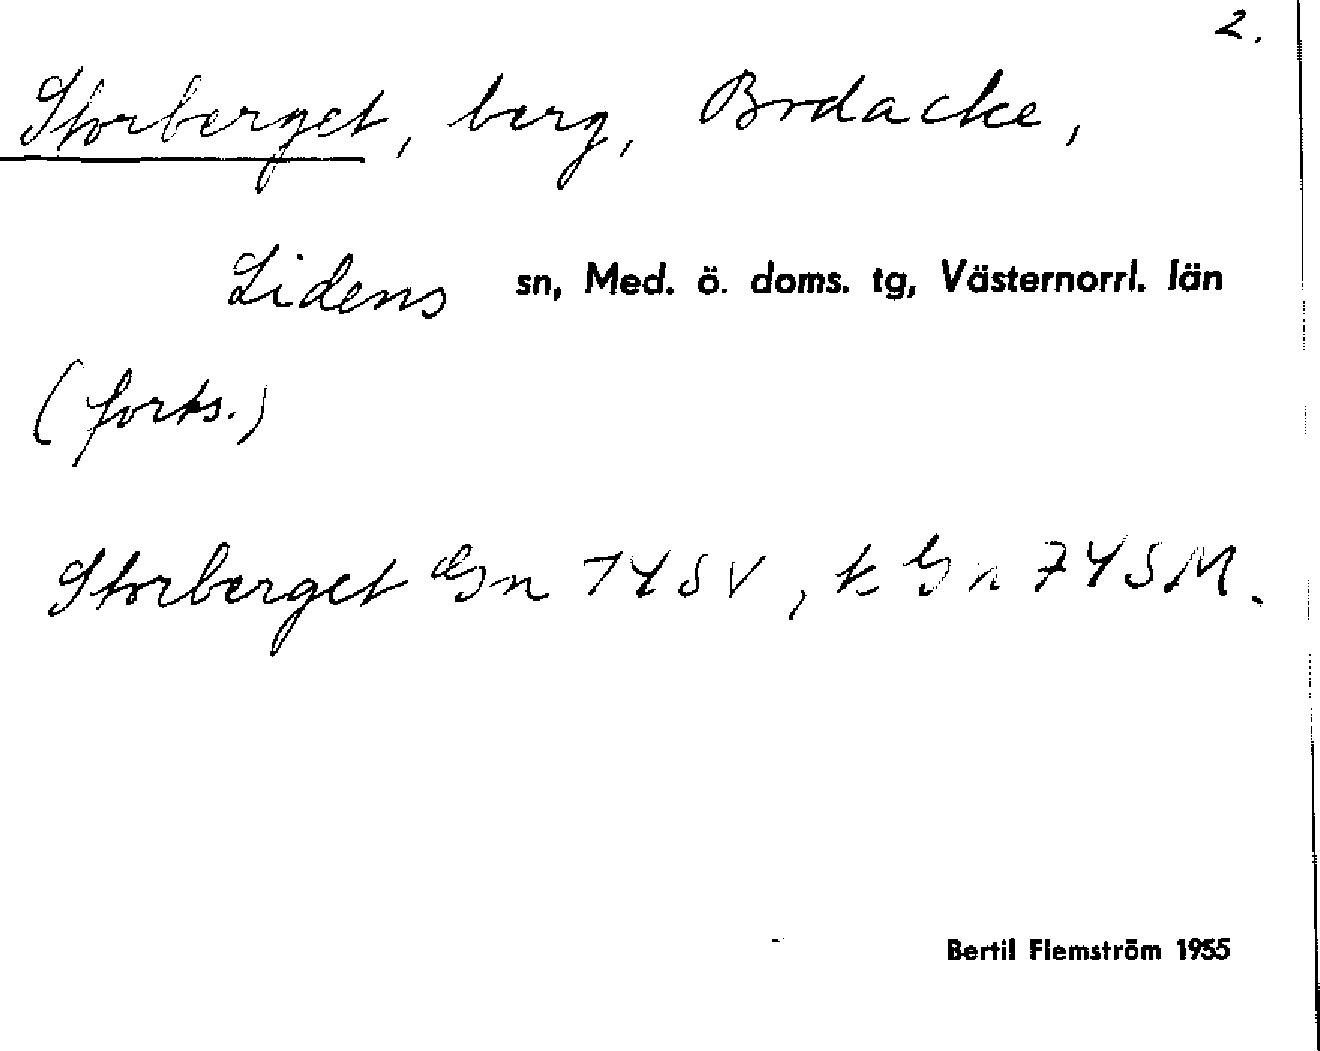 2.
Storberget, berg, Brdacke,
Lidens sn, Med. ö. doms. tg, Västernorrl. län
(forts.)
Storberget Gn 74 SV, k Gn 74 SM.
Bertil Flemström 1955